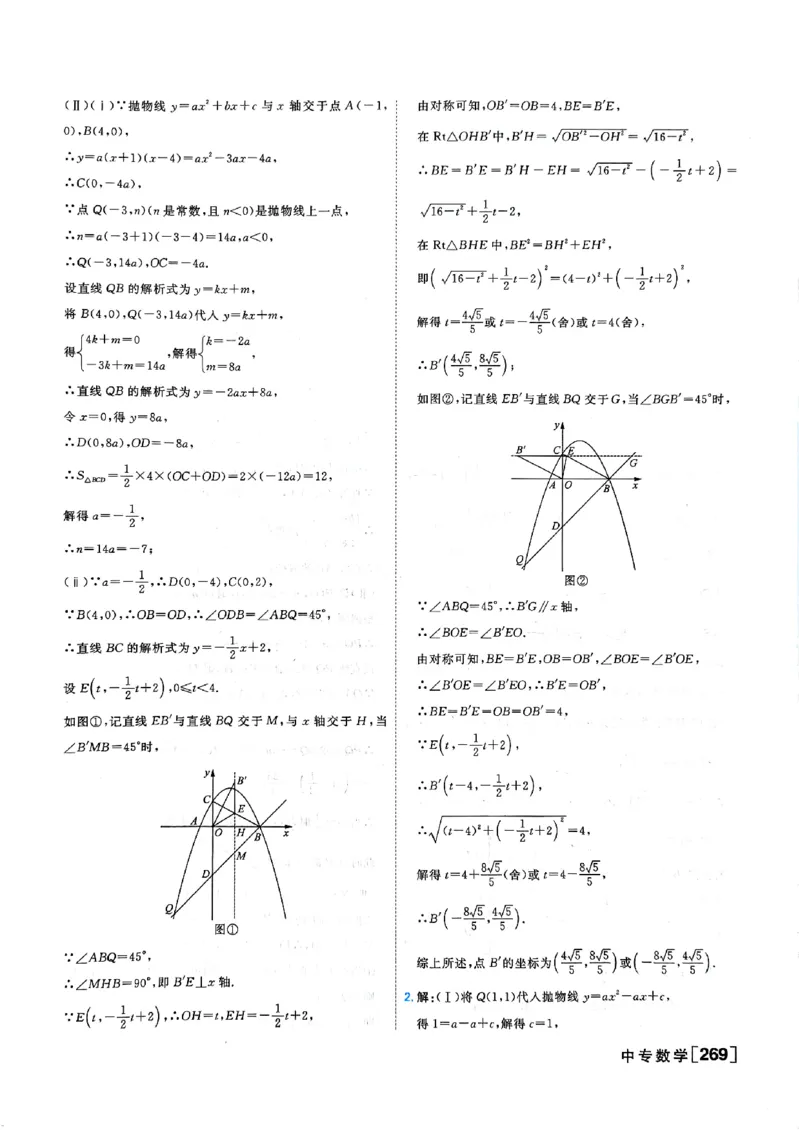 (Ⅱ)(ⅰ)∵抛物线 y=ax²+bx+c 与 x 轴交于点 A(-1,
0),B(4,0),
∴y=a(x+1)(x-4)=ax²-3ax-4a,
∴C(0,-4a),
∵点 Q(-3,n)(n 是常数,且 n<0)是抛物线上一点,
∴n=a(-3+1)(-3-4)=14a,a<0,
∴Q(-3,14a),OC=-4a.
设直线 QB 的解析式为 y=kx+m,
将 B(4,0),Q(-3,14a)代入 y=kx+m,
得{4k+m=0 -3k+m=14a ,解得{k=-2a m=8a ,
∴直线 QB 的解析式为 y=-2ax+8a,
令 x=0,得 y=8a,
∴D(0,8a),OD=-8a,
∴S△BCD=1/2×4×(OC+OD)=2×(-12a)=12,
解得 a=-1/2,
∴n=14a=-7;
(ⅱ)∵a=-1/2,∴D(0,-4),C(0,2),
∵B(4,0),∴OB=OD,∴∠ODB=∠ABQ=45°,
∴直线 BC 的解析式为 y=-1/2x+2,
设 E(t,-1/2t+2),0≤t<4.
如图①,记直线 EB′与直线 BQ 交于 M,与 x 轴交于 H,当
∠B′MB=45°时,
y
B′
C
E
A
O
H
B
x
M
D
Q
图①
∵∠ABQ=45°,
∴∠MHB=90°,即 B′E⊥x 轴.
∵E(t,-1/2t+2),∴OH=t,EH=-1/2t+2,
由对称可知,OB′=OB=4,BE=B′E,
在 Rt△OHB′中,B′H=√(OB′²-OH²)=√(16-t²),
∴BE=B′E=B′H-EH=√(16-t²)-(-1/2t+2)=
√(16-t²)+1/2t-2,
在 Rt△BHE 中,BE²=BH²+EH²,
即(√(16-t²)+1/2t-2)²=(4-t)²+(-1/2t+2)²,
解得 t=4√5/5或 t=-4√5/5(舍)或 t=4(舍),
∴B′(4√5/5,8√5/5);
如图②,记直线 EB′与直线 BQ 交于 G,当∠BGB′=45°时,
y
B′
C
E
G
A
O
B
x
D
Q
图②
∵∠ABQ=45°,∴B′G∥x 轴,
∴∠BOE=∠B′EO.
由对称可知,BE=B′E,OB=OB′,∠BOE=∠B′OE,
∴∠B′OE=∠B′EO,∴B′E=OB′,
∴BE=B′E=OB=OB′=4,
∵E(t,-1/2t+2),
∴B′(t-4,-1/2t+2),
∴√((t-4)²+(-1/2t+2)²)=4,
解得 t=4+8√5/5(舍)或 t=4-8√5/5,
∴B′(-8√5/5,4√5/5).
综上所述,点 B′的坐标为(4√5/5,8√5/5)或(-8√5/5,4√5/5).
2.解:(Ⅰ)将 Q(1,1)代入抛物线 y=ax²-ax+c,
得 1=a-a+c,解得 c=1,
中专数学[269]